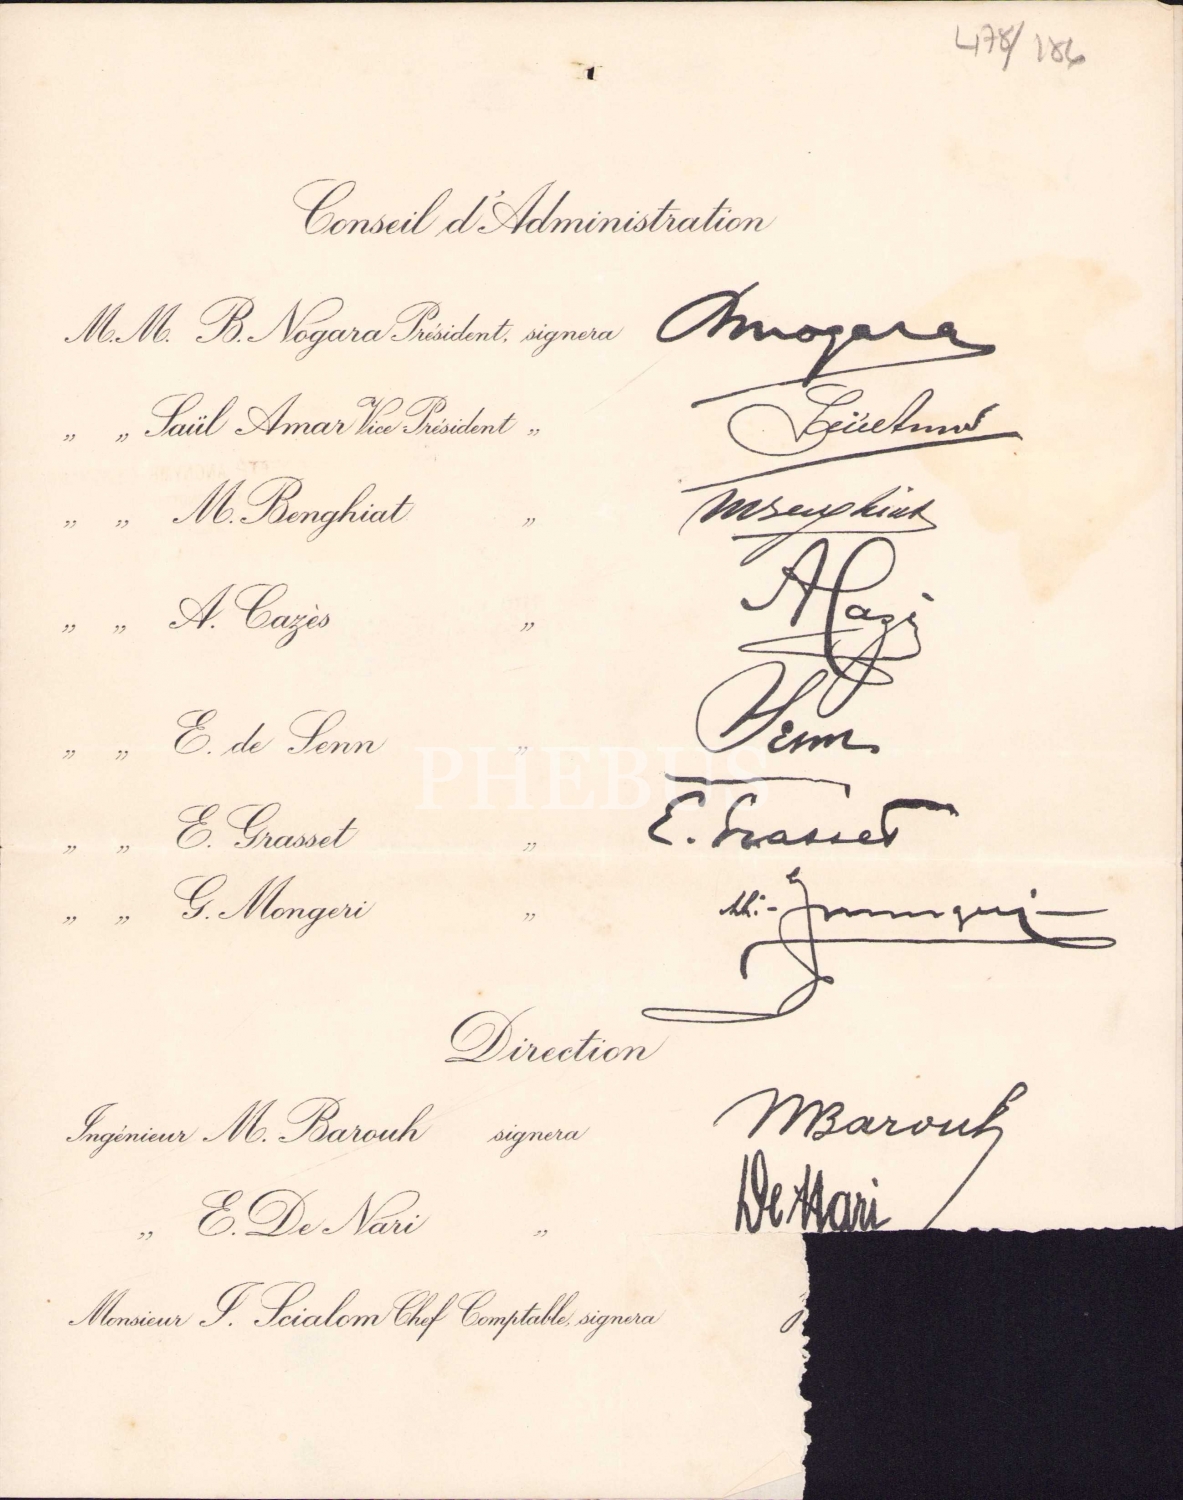 478/186
Conseil d'Administration
M.M. B. Nogara Président, signera BNogara
„ „ Saül Amar Vice Président „ Saül Amar
„ „ M. Benghiat „ MBenghiat
„ „ A. Cazès „ A Cazès
„ „ E. de Senn „ Senn
PHEBUS
„ „ E. Grasset „ E. Grasset
„ „ G. Mongeri „
Direction
Ingénieur M. Barouh signera MBarouh
„ E. De Nari „ De Nari
Monsieur I. Scialom Chef Comptable, signera